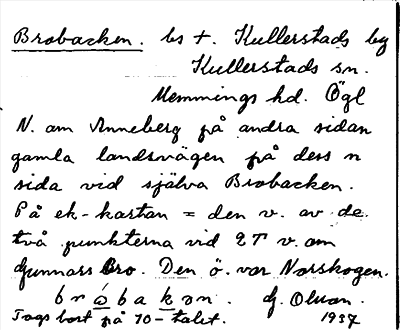 Brobacken. bs t. Kullerstads by
Kullerstads sn.
Memmings hd. Ögl
N. om Anneberg på andra sidan
gamla landsvägen på dess n
sida vid själva Brobacken.
På ek-kartan = den v. av de
två punkterna vid 2T v. om
Gunnars Bro. Den ö. var Norskogen.
brobakən. G. Olson.
Togs bort på 70-talet. 1937